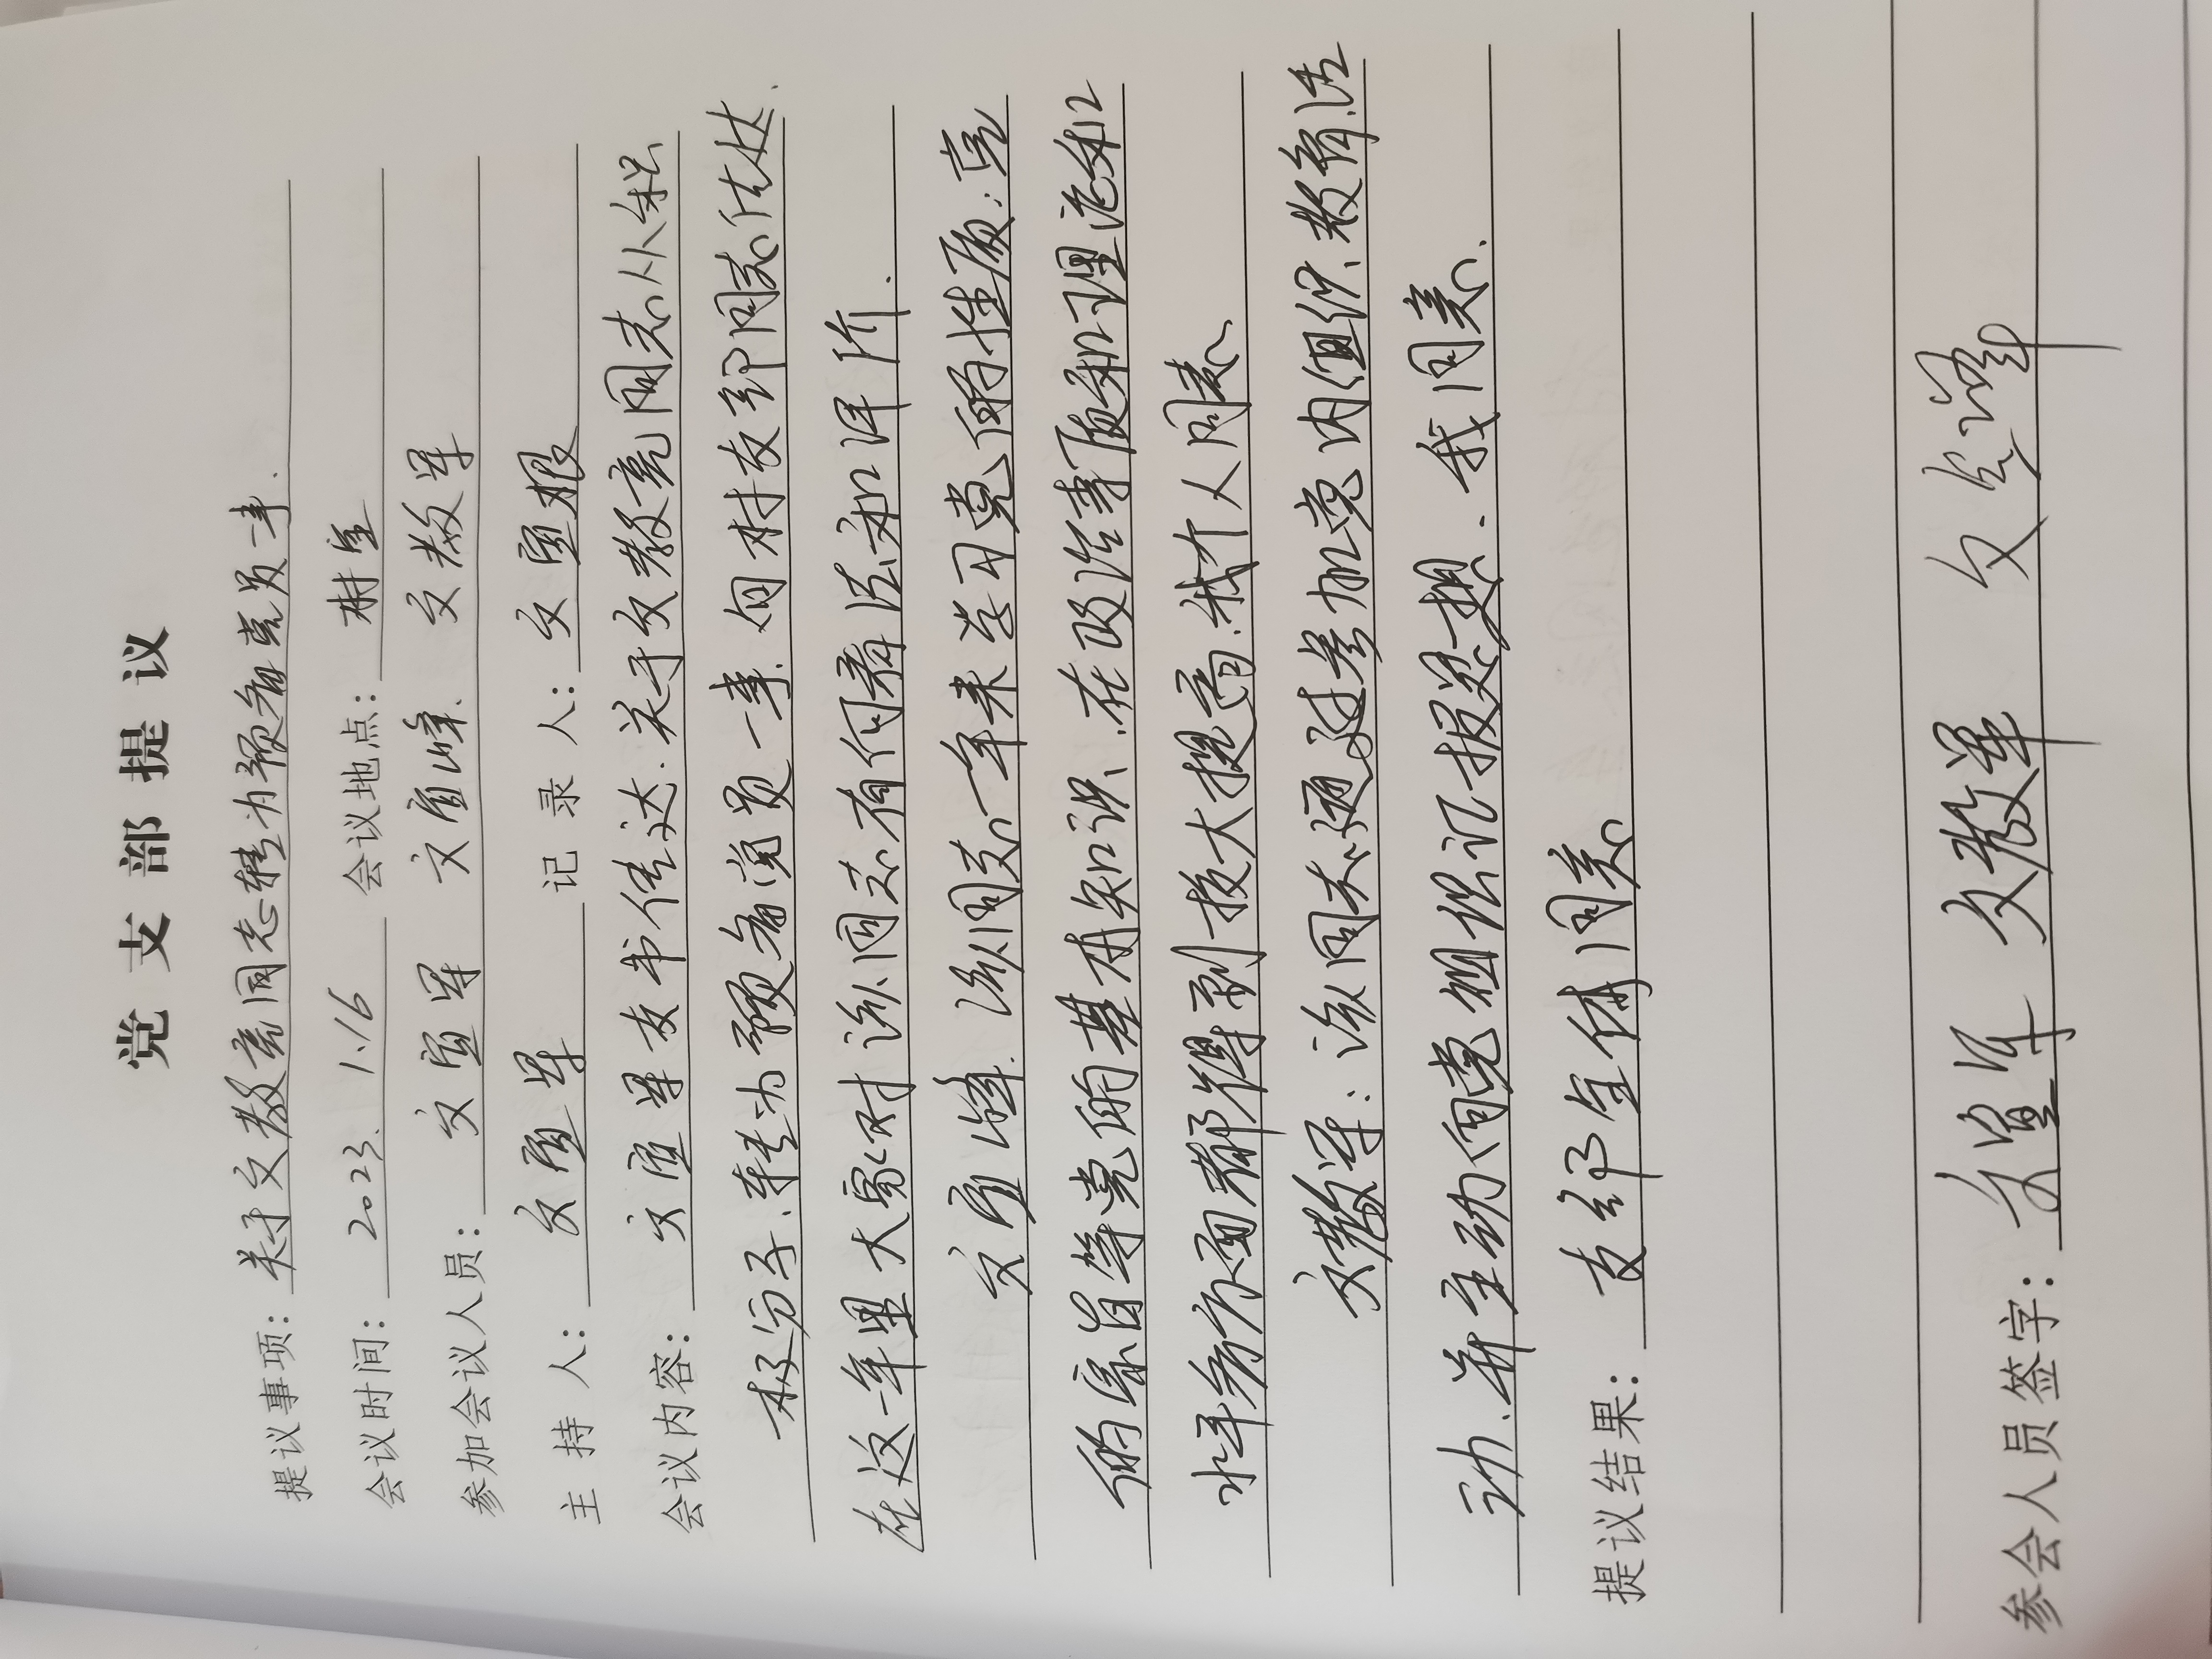 党支部提议
提议事项：关于文教亮同志转为预备党员一事.
会议时间：2023.1.16 会议地点：村室
参加会议人员：文宜军 文宜峰. 文教军
主 持 人：文宜军 记 录 人：文宜根
会议内容：文宜军支书传达.关于文教亮同志从积
极分子.转为预备党员一事.向村支部同志传达.
在这一年里大家对该同志有何看法和评价.
文宜峰.该同志一年来学习党的性质:党
的宗旨等党的基本知识.在政治事故和理论和
水平各方面都得到较大提高.我个人同意.
文教军:该同志通过参加党内组织.教育活
动.并主动向党组织汇报思想.我同意.
提议结果：支部全体同意。
参会人员签字：文宜军 文教军 文宜峰